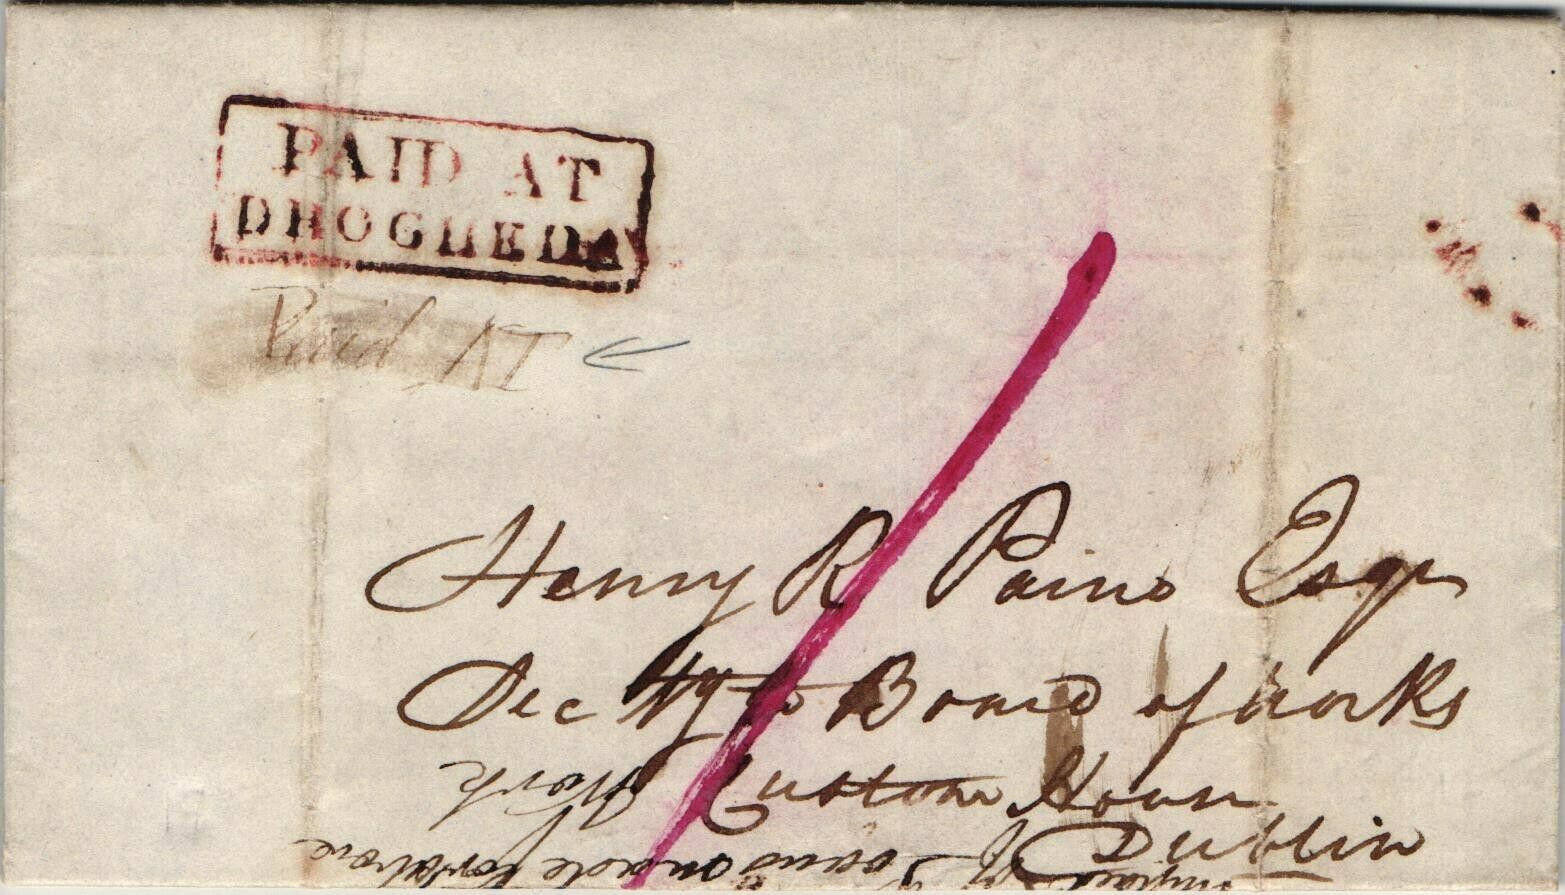 PAID AT
DROGHEDA
Paid AT
Henry R Paine Esqr
Secty to Board of Works
Custom House
Dublin